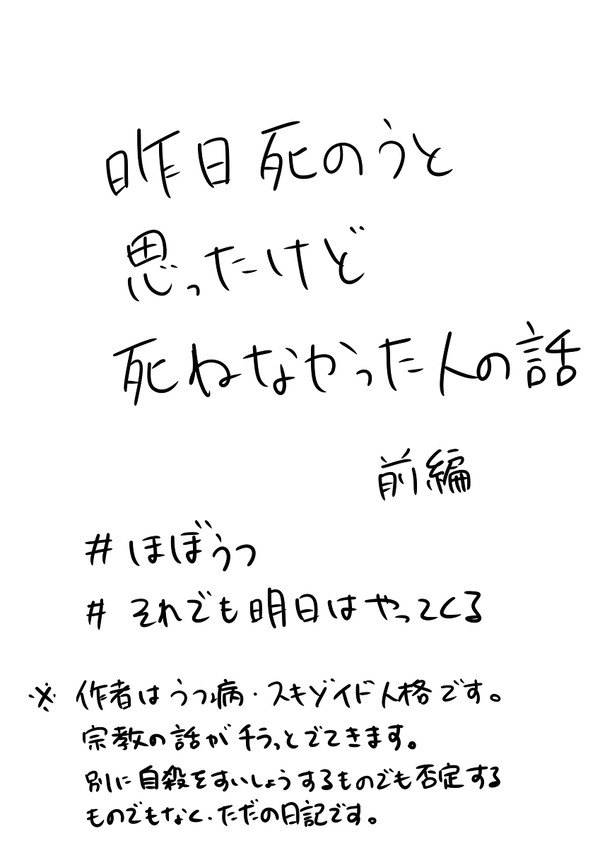 昨日死のうと
思ったけど
死ねなかった人の話
前編
#ほぼうつ
#それでも明日はやってくる
※作者はうつ病・スキゾイド人格です。
宗教の話がチラっとでてきます。
別に自殺をすいしょうするものでも否定する
ものでもなく、ただの日記です。